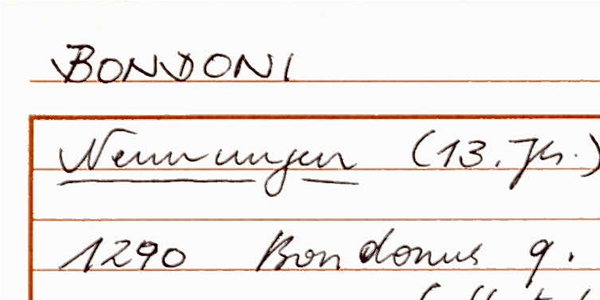 BONDONI
Nennungen (13. Jh.)
1290 Bondonus q.